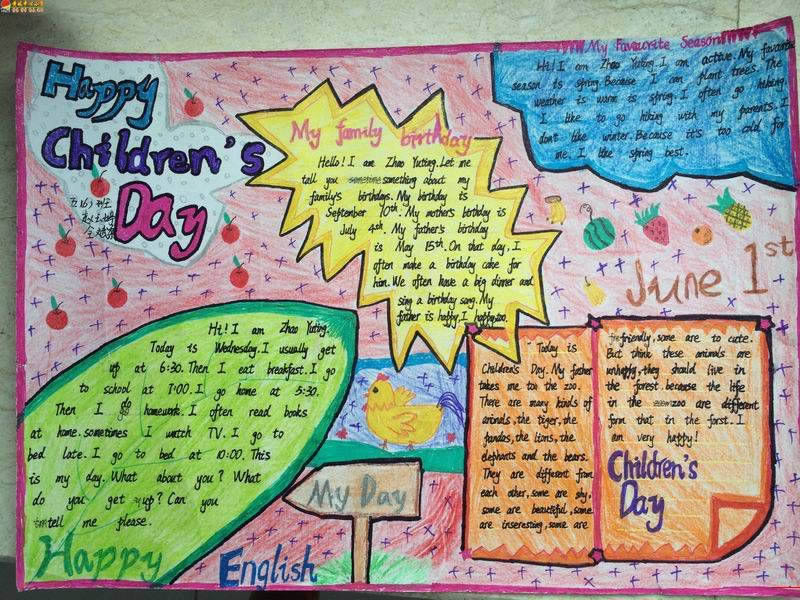 Happy
Children's
Day
My family birthday
Hello! I am Zhao Yuting. Let me
tell you something about my
family's birthdays. My birthday is
September 10th. My mother's birthday is
July 4th. My father's birthday
is May 15th. On that day, I
often make a birthday cake for
him. We often have a big dinner and
sing a birthday song. My
father is happy. I happy too.
My Favourite Season
Hi! I am Zhao Yuting. I am active. My favourite
season is spring. Because I can plant trees. The
weather is warm is spring. I often go hiking.
I like to go hiking with my parents. I
don't like winter. Because it's too cold for
me. I like spring best.
June 1st
Hi! I am Zhao Yuting.
Today is Wednesday. I usually get
up at 6:30. Then I eat breakfast. I go
to school at 7:00. I go home at 5:30.
Then I do homework. I often read books
at home. sometimes I watch TV. I go to
bed late. I go to bed at 10:00. This
is my day. What about you? What
do you get up? Can you
tell me please.
Happy
English
My Day
Today is
Children's Day. My father
takes me to the zoo.
There are many kinds of
animals, the tiger, the
pandas, the lions, the
elephants and the bears.
They are different from
each other, some are shy,
some are beautiful, some
are inseresting, some are
friendly, some are to cute.
But think these animals are
unhappy, they should live in
the forest. because the life
in the zoo are different
form that in the forst. I
am very happy!
Children's
Day